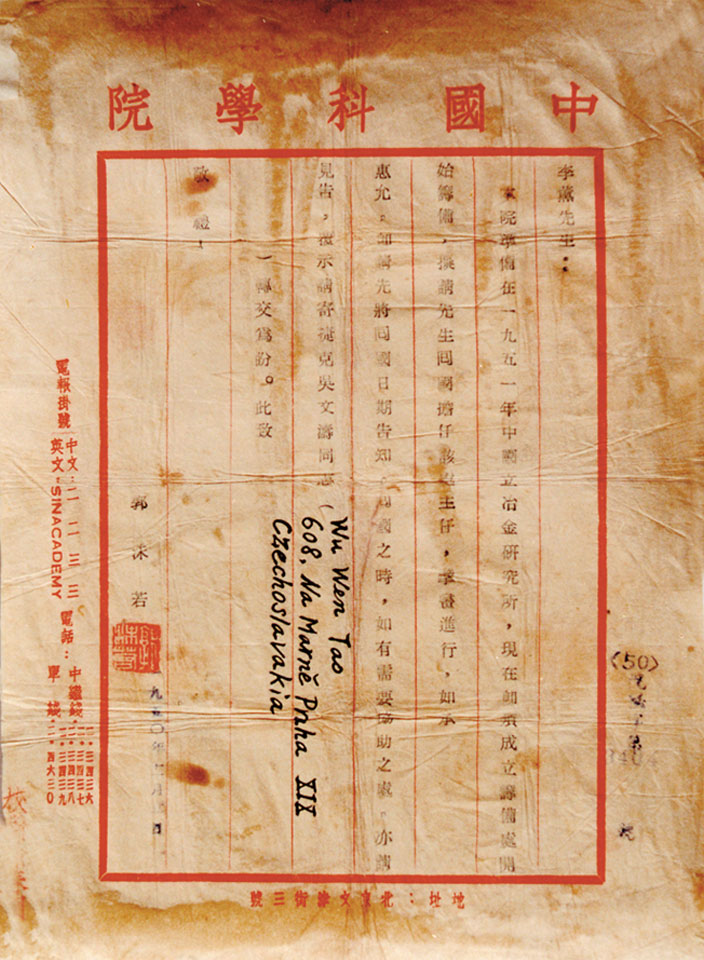 中國科學院
〈50〉
李薰先生：
本院準備在一九五一年中立冶金研究所，現在卽須成立籌備處開
始籌備，擬請先生回國擔任該處主任，擘畫進行，如承
惠允，卽請先將回國日期告知。回國之時，如有需要協助之處，亦請
見告，覆示請寄捷克吳文濤同志（
Wu Wen Tao
608, Na Marně Praha XIX
Czechoslavakia
）轉交爲盼。此致
敬禮！
郭沫若
一九五〇年
電報掛號
中文：二二三三
英文："SINACADEMY"
電話：中繼綫：
單綫：二．四六三〇
地址：北京文津街三號